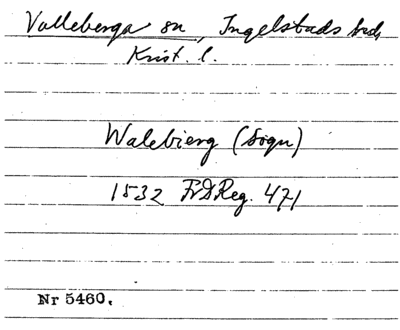 Valleberga sn, Ingelstads hrd,
Krist. l.
Walebierg (Sogn)
1532 FrDReg. 471
Nr 5460.